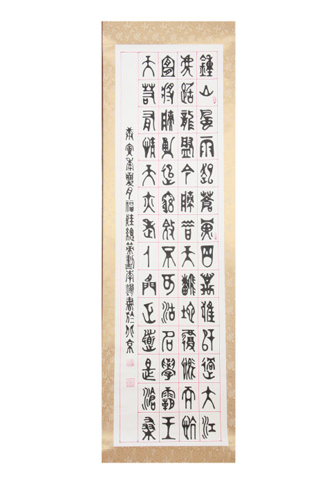 鍾山風雨起蒼黃百萬雄師過大江
虎踞龍盤今勝昔天翻地覆慨而慷
宜將賸勇追窮寇不可沽名學霸王
天若有情天亦老人間正道是滄桑
寅 月 書於北京